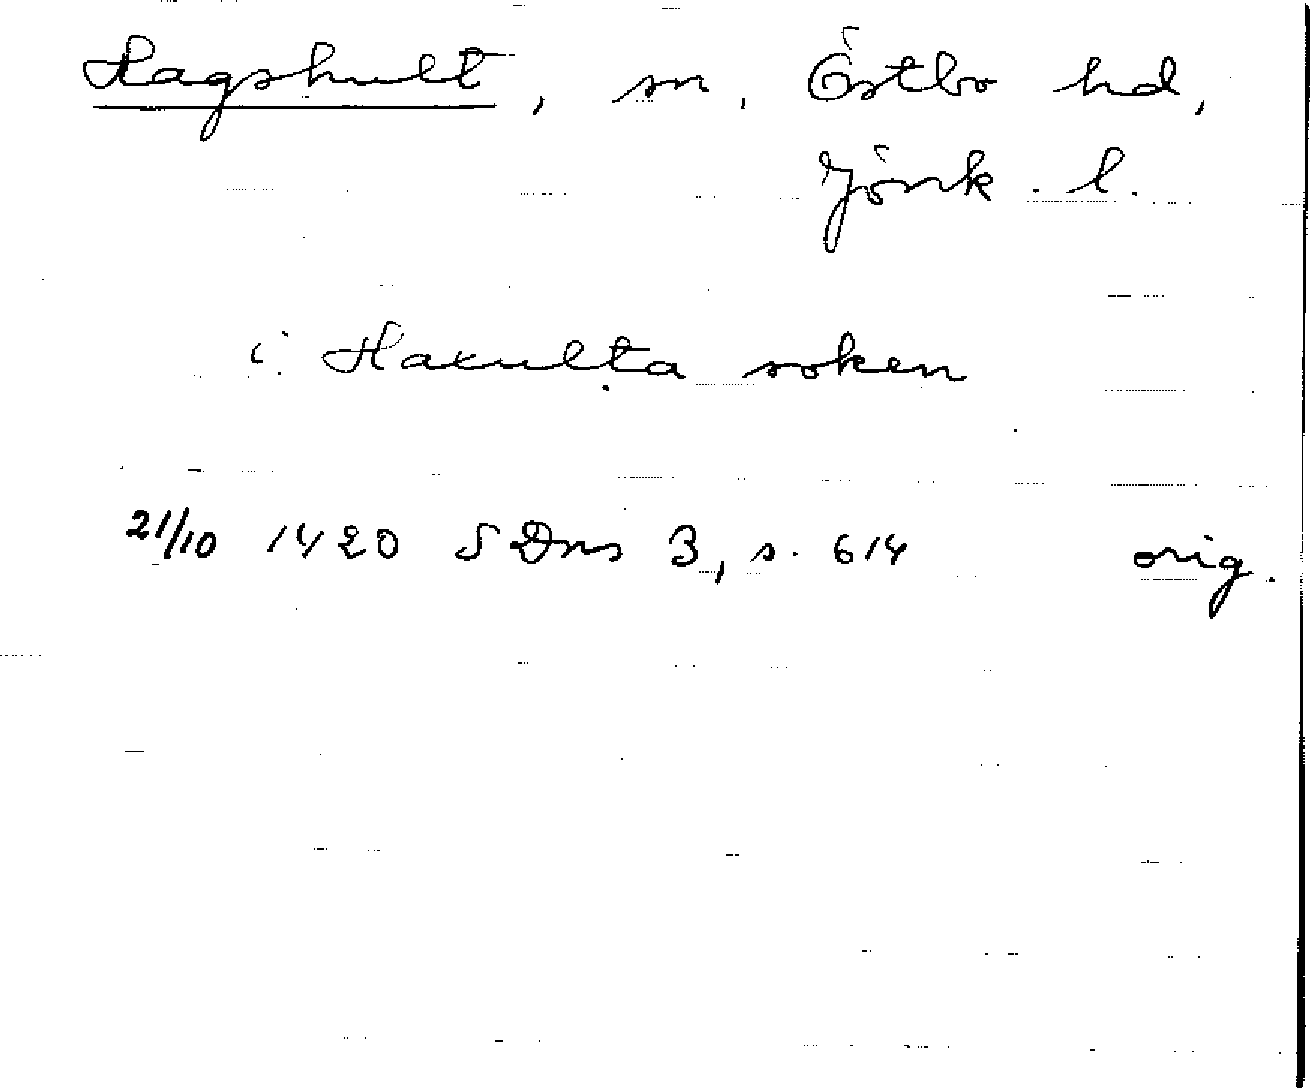 Hagshult, sn, Östbo hd,
Jönk. l.
i Haxulta soken
21/10 1420 SDns 3, s. 614 orig.